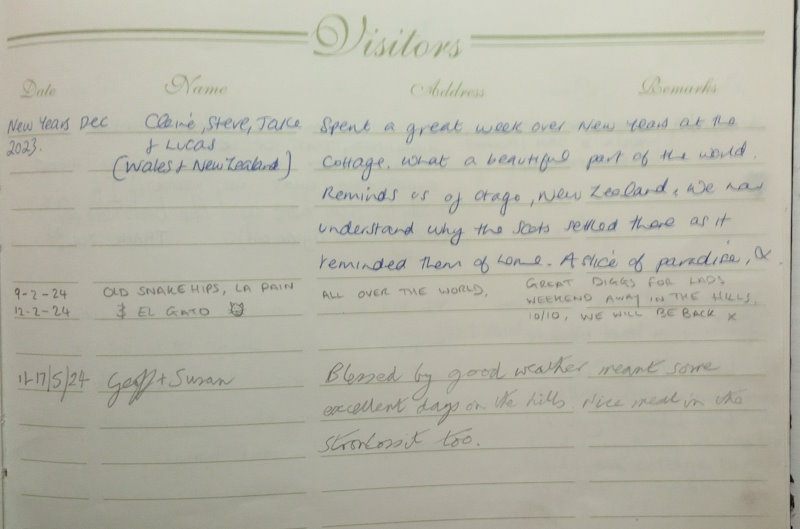 Visitors
Date Name Address Remarks
New Years Dec Claire, Steve, Jake Spent a great week over New Years at the
2023. & Lucas cottage. What a beautiful part of the world.
(Wales & New Zealand) Reminds us of Otago, New Zealand, & we now
understand why the Scots settled there as it
reminded them of home. A slice of paradise,
9-2-24 OLD SNAKEHIPS, LA PAIN ALL OVER THE WORLD, GREAT DIGGS FOR LADS
12-2-24 & EL GATO WEEKEND AWAY IN THE HILLS,
10/10, WE WILL BE BACK x
11-17/5/24 Geoff + Susan Blessed by good weather meant some
excellent days on the hills. Nice meal in the
too.